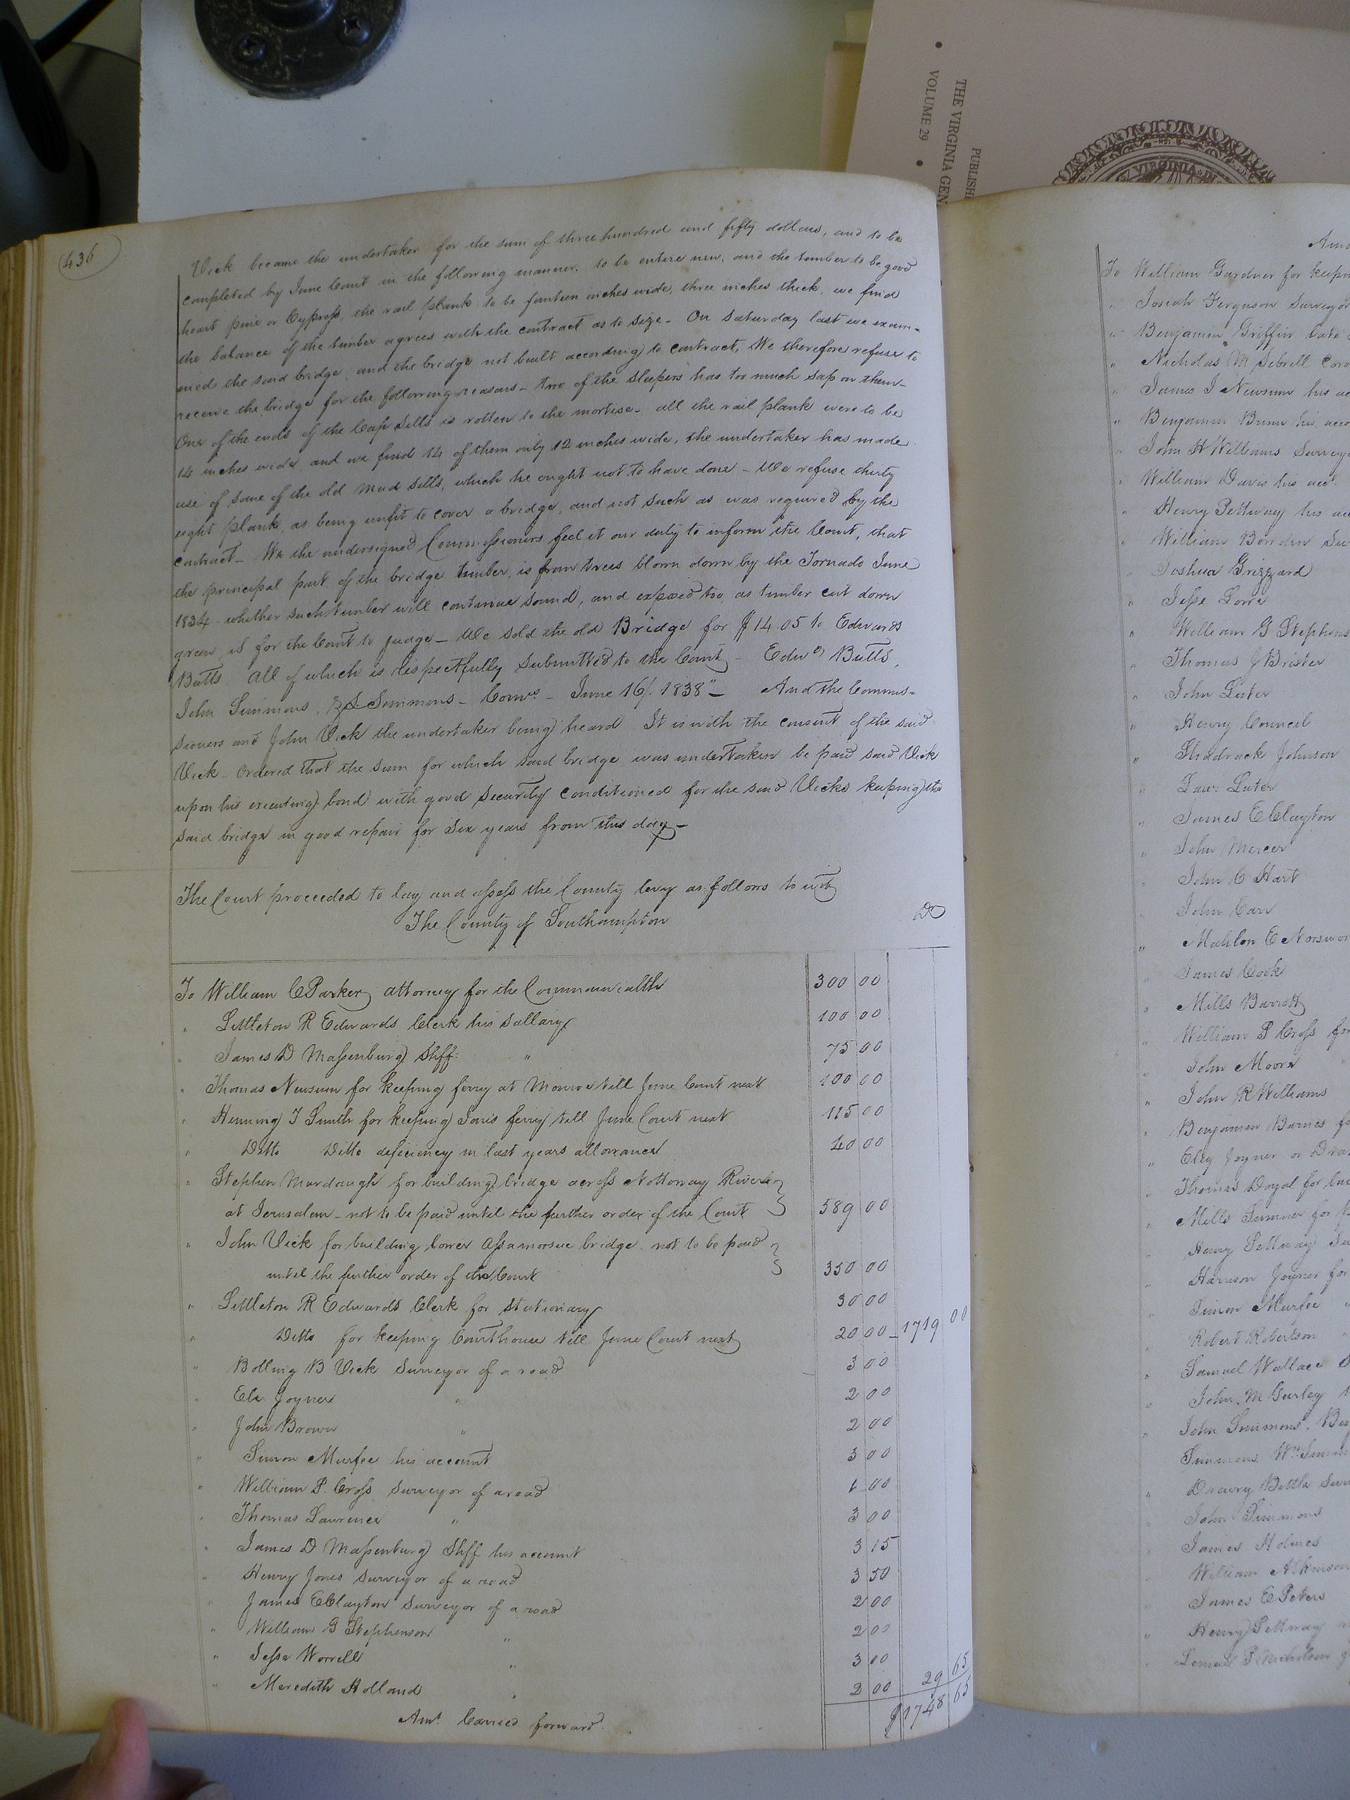 THE VIRGINIA GEN
VOLUME 29
PUBLISH
VIRGINIA
436
Vick became the undertaker for the sum of three hundred and fifty dollars, and to be
completed by June Court in the following manner. to be entire new, and the timber to be good
heart pine or Cypress, the rail plank to be fourteen inches wide, three inches thick, we find
the balance of the timber agrees with the contract as to size - On Saturday last we exam-
ined the said bridge, and the bridge not built according to contract, We therefore refuse to
receive the bridge for the following reasons - two of the Sleepers has too much sap on them -
One of the ends of the Cap Sills is rotten to the mortise - all the rail plank were to be
14 inches wide and we find 14 of them only 12 inches wide, the undertaker has made
use of some of the old Mud Sills, which he ought not to have done - We refuse thirty
eight plank, as being unfit to cover a bridge, and not such as was required by the
contract - We the undersigned Commissioners feel it our duty to inform the Court, that
the principal part of the bridge timber, is from trees blown down by the Tornado June
1834 - whether such timber will continue sound, and exposed too, as timber cut down
green, is for the Court to judge - We sold the old Bridge for $14.05 to Edwards
Butts. All of which is respectfully Submitted to the Court - Edwd Butts,
John Simmons, Simmons - Comrs - June 16th 1838" - And the Commis-
sioners and John Vick the undertaker being heard It is with the consent of the said
Vick - Ordered that the sum for which said bridge was undertaken be paid said Vick
upon his executing bond with good Security conditioned for the said Vicks keeping the
said bridge in good repair for Six years from this day -
The Court proceeded to lay and assess the County levy as follows to wit
The County of Southampton Dr
To William C Parker attorney for the Commonwealth 300 00
" Littleton R Edwards Clerk his Sallary 100 00
" James D Massenburg Shff " 75 00
" Thomas Newsum for keeping ferry at Monroe till June Court next 100 00
" Henning T Smith for keeping ferry till June Court next 115 00
" Ditto Ditto deficiency in last years allowance 40 00
" Stephen Murdaugh for building bridge across Nottoway River
at Jerusalem - not to be paid until the further order of the Court 589 00
" John Vick for building lower Assamoosuc bridge - not to be paid
until the further order of the Court 350 00
" Littleton R Edwards Clerk for Stationary 30 00
" Ditto for keeping Courthouse till June Court next 20 00 - 1719 00
" Bolling B Vick Surveyor of a road 3 00
" Eli Joyner " 2 00
" John Brown " 2 00
" Simon Murfee his account 3 00
" William P. Cross Surveyor of a road 1 00
" Thomas Lawrence " 3 00
" James D Massenburg Shff his account 3 15
" Henry Jones Surveyor of a road 3 50
" James E Clayton Surveyor of a road 2 00
" William G Stephenson " 2 00
" Jesse Worrell " 3 00
" Meredith Holland " 2 00 29 65
Amt Carried forward $1748 65
Amo
To William Gardner for keeping
" Josiah Ferguson Surveyor
" Benjamin Griffin
" Nicholas M Sebrell Coro
" James J Newsum his ac
" Benjamin Bunn his acco
" John H Williams Surveyo
" William Davis his acct
" Henry Pettway his ac
" William Bowden Sur
" Joshua Grizzard
" Jesse
" William G Stephens
" Thomas J Brister
" John Luter
" Henry Council
" Shadrack Johnson
" Luter
" James E Clayton
" John Mercer
" John C Hart
" John Carr
" Mahlon E Norswor
" James Cook
" Mills Barrett
" William P Cross for
" John Moore
" John R Williams
" Benjamin Barnes fo
" Eley Joyner
" Thomas Doyal for
" Mills for
" Henry Pettway Su
" Harrison Joyner for
" Simon Murfee "
" Robert Robertson
" Samuel Wallace
" John M Gurley
" John Simmons,
Simmons, Wm
" Drewry Bittle Surv
" John Simmons
" James Holmes
" William Atkinson
" James E Peters
" Henry Pettway
" Nicholson